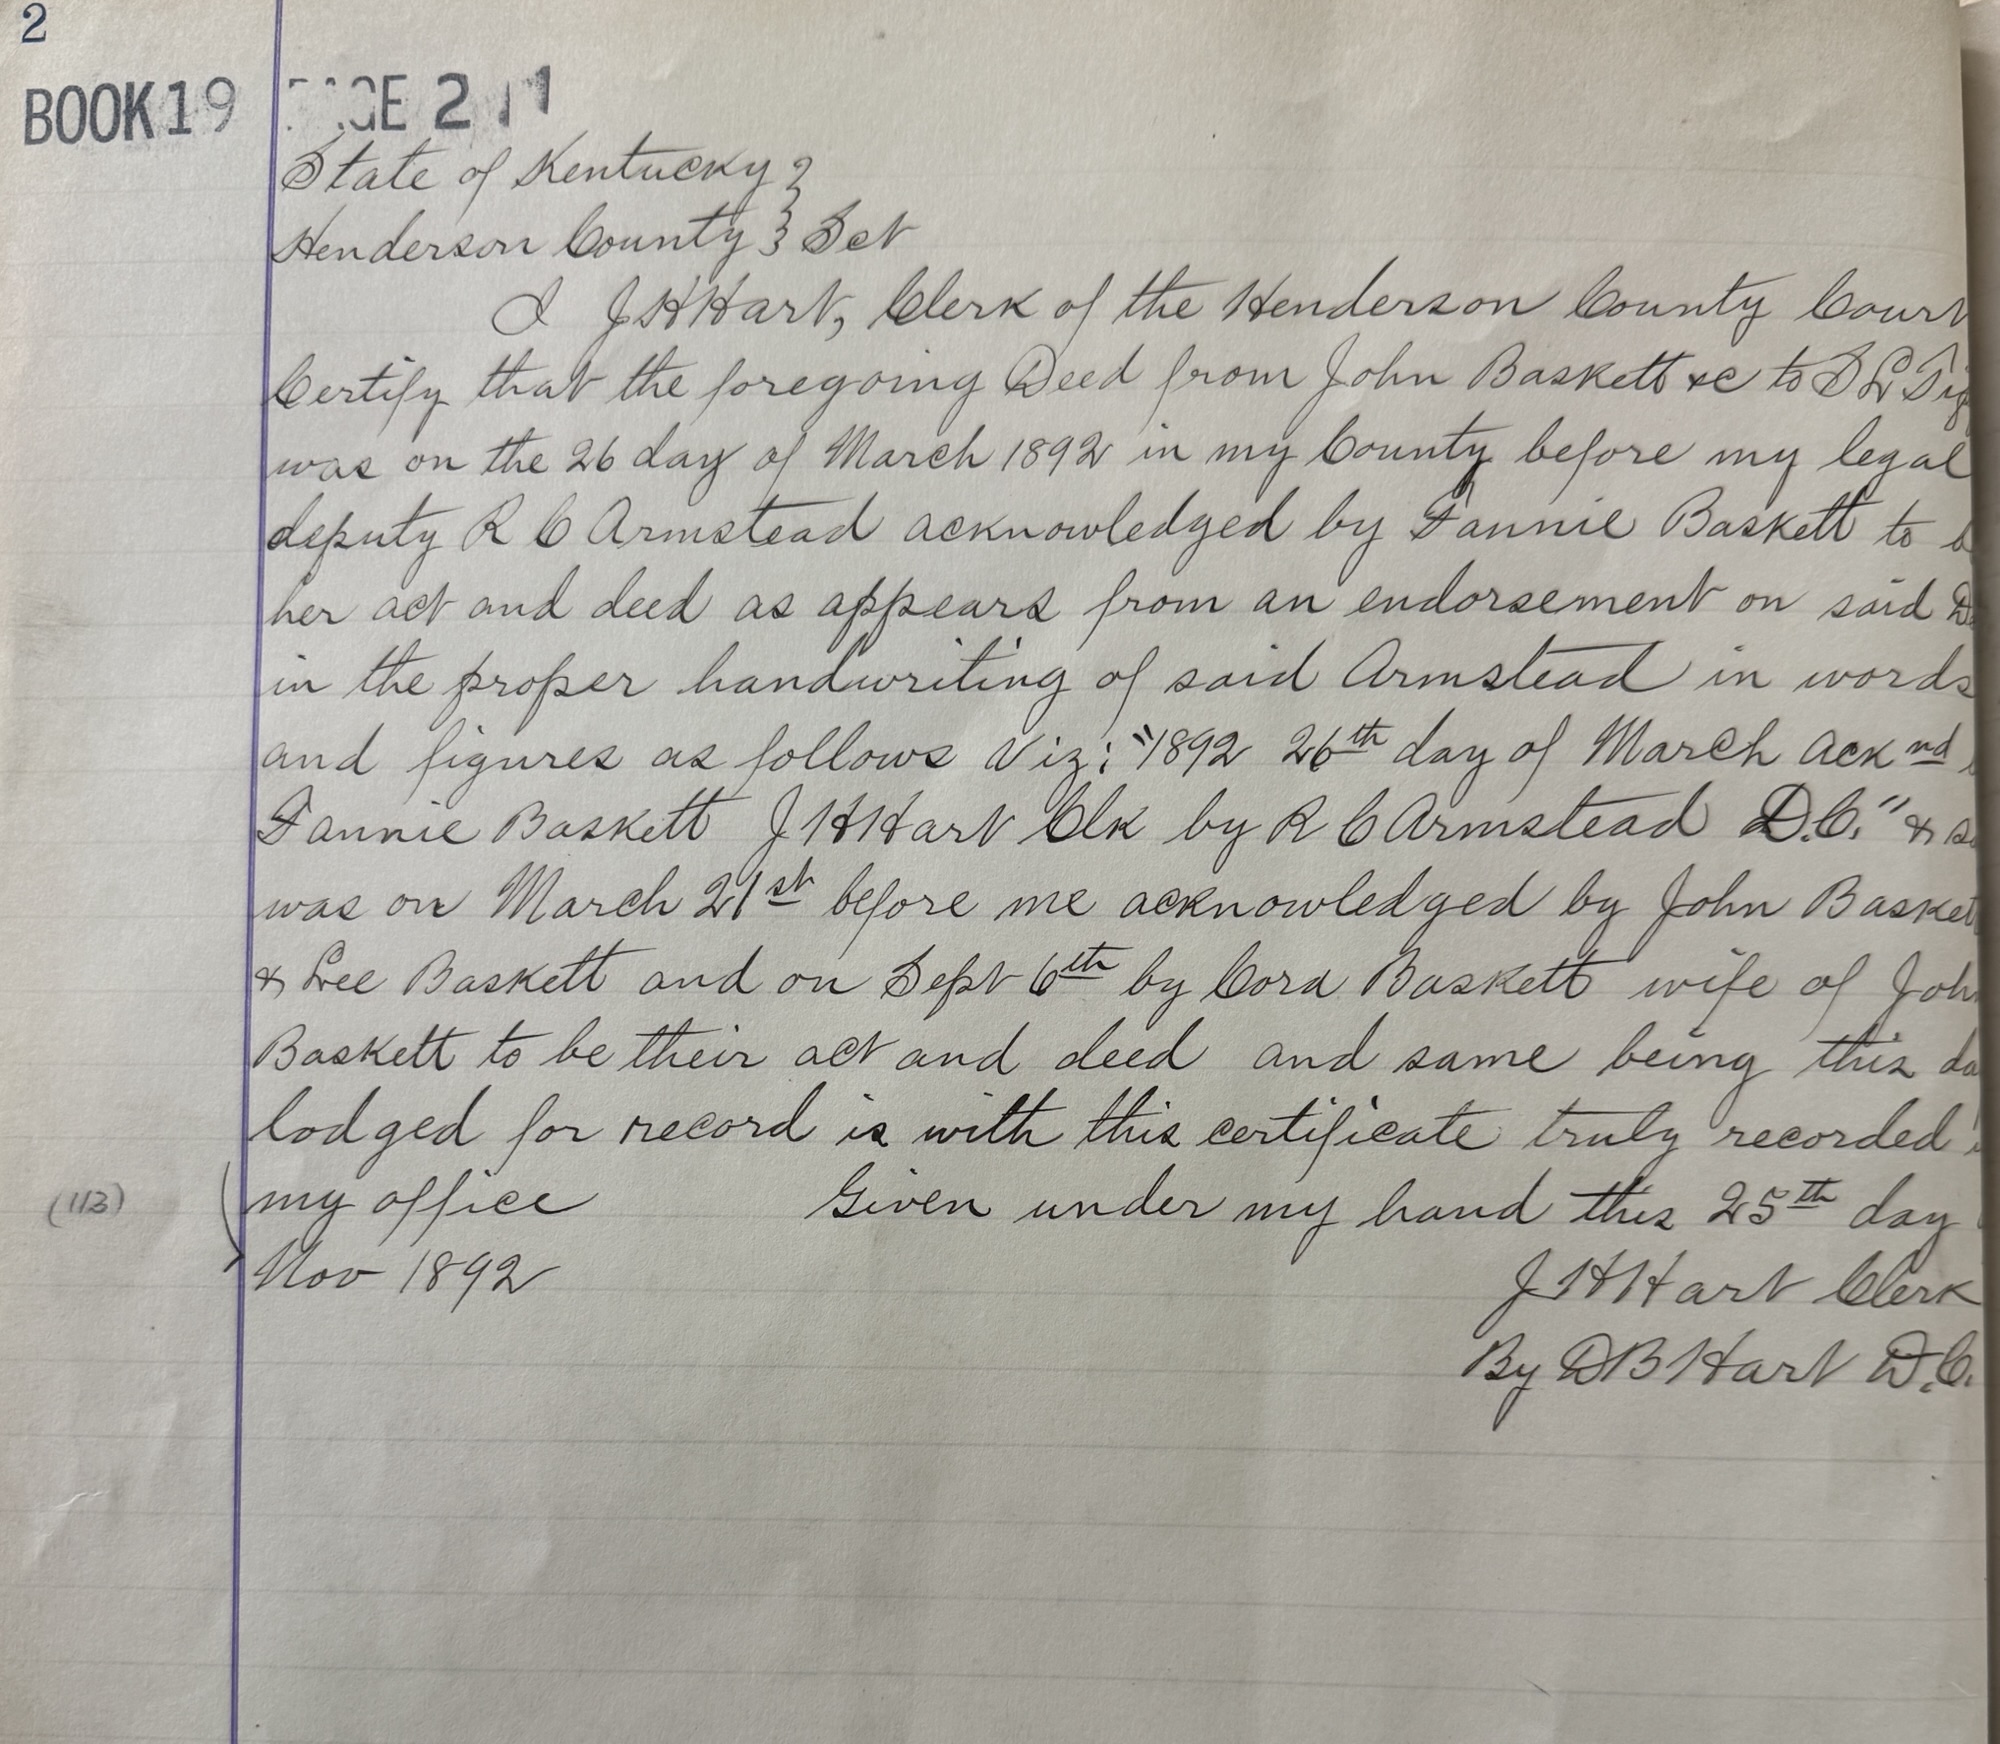 2
BOOK 19 PAGE 211
State of Kentucky }
Henderson County } Sct
I J H Hart, Clerk of the Henderson County Court
Certify that the foregoing Deed from John Baskett &c to S L
was on the 26 day of March 1892 in my County before my legal
deputy R C Armstead acknowledged by Fannie Baskett to
her act and deed as appears from an endorsement on said
in the proper handwriting of said Armstead in words
and figures as follows Viz: "1892 26th day of March Acknd
Fannie Baskett J H Hart Clk by R C Armstead D.C." &
was on March 21st before me acknowledged by John Baskett
& Lee Baskett and on Sept 6th by Cora Baskett wife of John
Baskett to be their act and deed and same being this
lodged for record is with this certificate truly recorded
(113) my office Given under my hand this 25th day
Nov 1892
J H Hart Clerk
By D B Hart D.C.